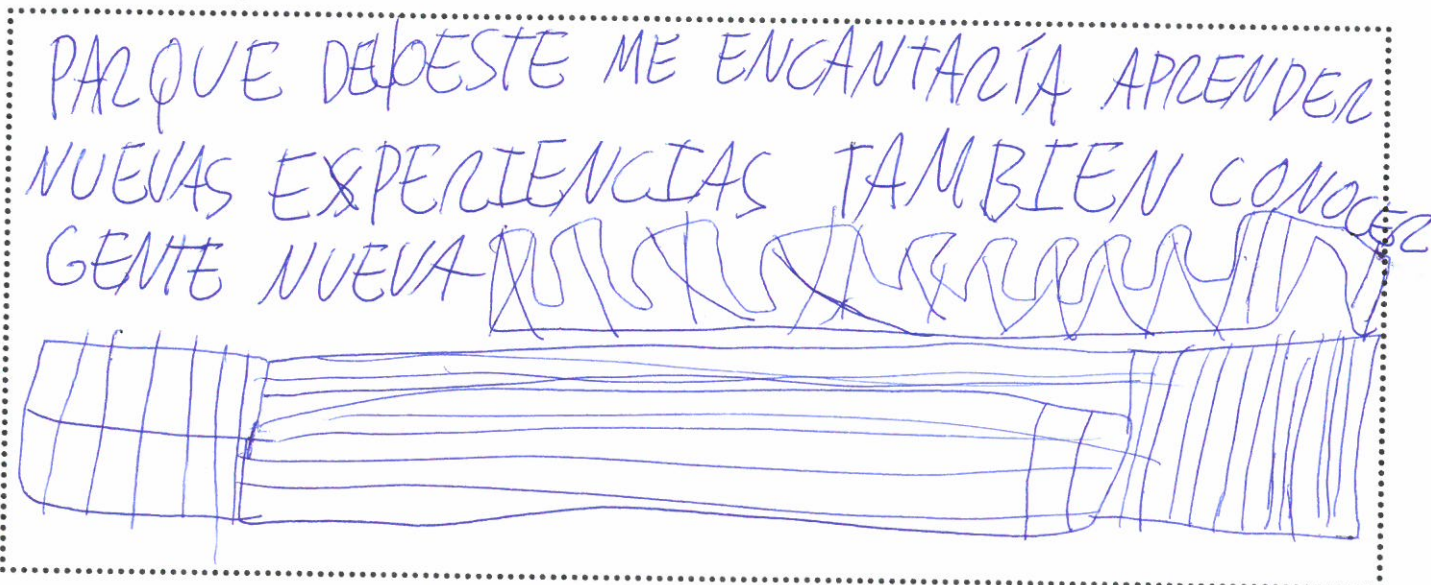 PARQUE DEL OESTE ME ENCANTARÍA APRENDER
NUEVAS EXPERIENCIAS TAMBIEN CONOCER
GENTE NUEVA